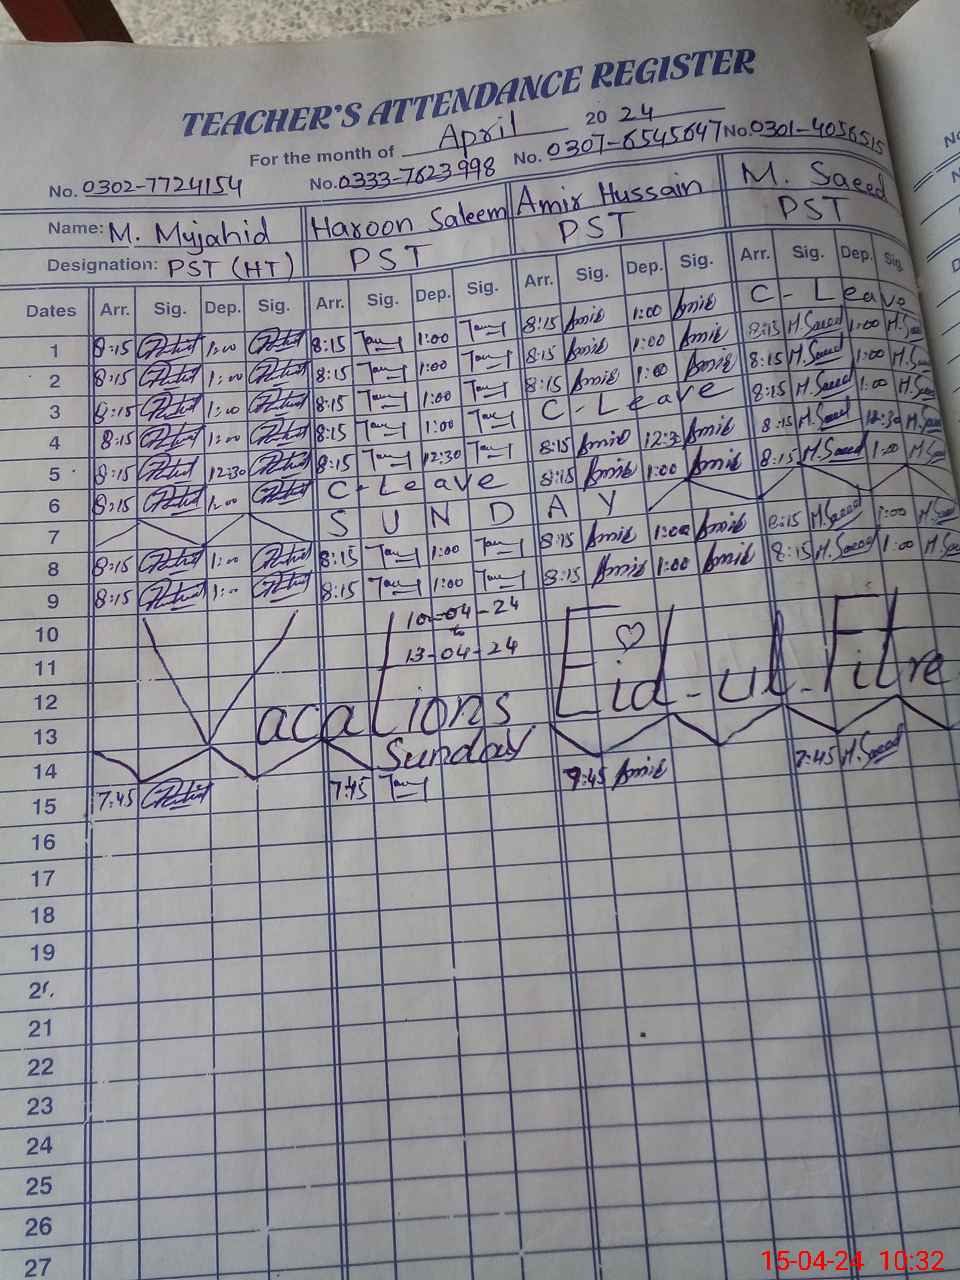 TEACHER'S ATTENDANCE REGISTER
For the month of April 20 24
No. 0302-7724154 No. 0333-7623998 No. 0307-6545647 No. 0301-4056515
Name: M. Mujahid Haroon Saleem Amir Hussain M. Saeed
Designation: PST (HT) PST PST PST
Dates Arr. Sig. Dep. Sig. Arr. Sig. Dep. Sig. Arr. Sig. Dep. Sig. Arr. Sig. Dep. Sig.
1 8:15 1:00 8:15 1:00 8:15 Amir 1:00 Amir C-Leave
2 8:15 1:00 8:15 1:00 8:15 Amir 1:00 Amir 8:15 M.Saeed 1:00 M.Sae
3 8:15 1:00 8:15 1:00 8:15 Amir 1:00 Amir 8:15 M.Saeed 1:00 M.Sae
4 8:15 1:00 8:15 1:00 C-Leave 8:15 M.Saeed 1:00 M.Sae
5 8:15 12:30 8:15 12:30 8:15 Amir 12:3 Amir 8:15 M.Saeed 12:30 M.Sae
6 8:15 1:00 C-Leave 8:15 Amir 1:00 Amir 8:15 M.Saeed 1:00 M.Sae
7 SUNDAY
8 8:15 1:00 8:15 1:00 8:15 Amir 1:00 Amir 8:15 M.Saeed 1:00 M.Sae
9 8:15 1:00 8:15 1:00 8:15 Amir 1:00 Amir 8:15 M.Saeed 1:00 M.Sae
10 10-04-24
to
11 13-04-24
12 Vacations Eid-ul-Fitre
13 Sunday
14
15 7:45 7:45 7:45 Amir 7:45 M.Saeed
16
17
18
19
20
21
22
23
24
25
26
27
15-04-24 10:32